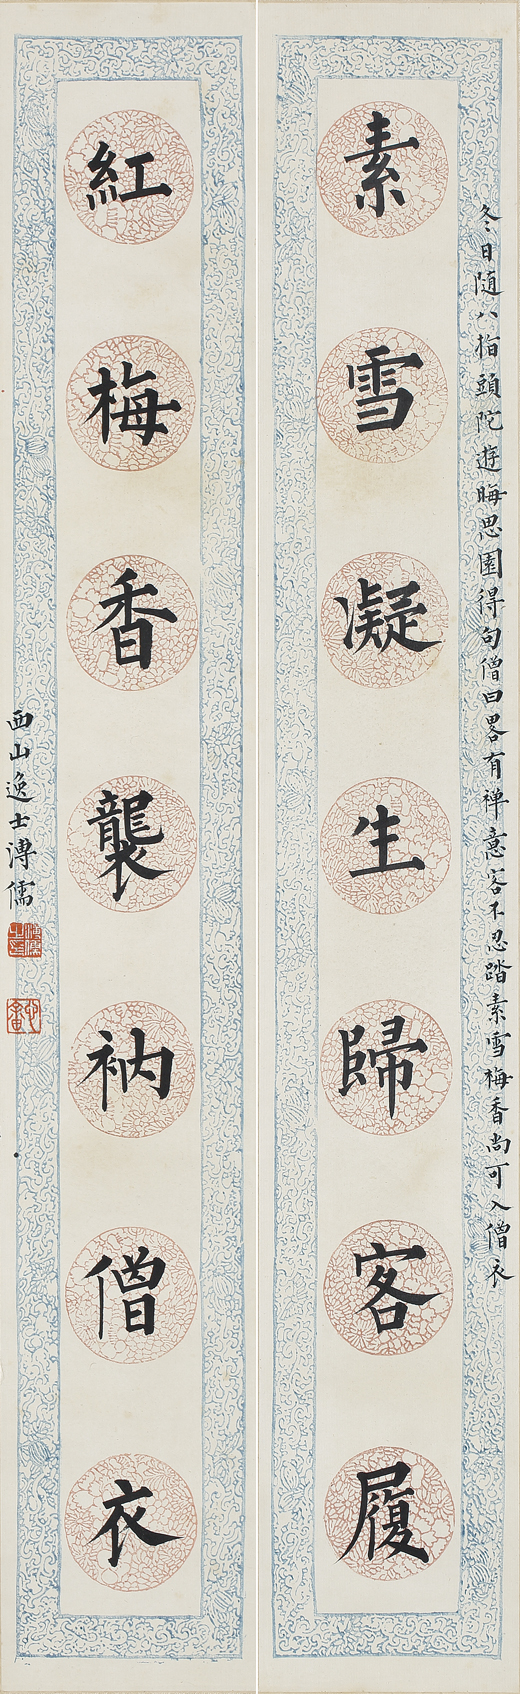 冬日随八指頭陀遊晦思園得句僧曰畧有禅意客不忍踏素雪梅香尚可入僧衣
素雪凝生歸客履
紅梅香襲衲僧衣
西山逸士溥儒